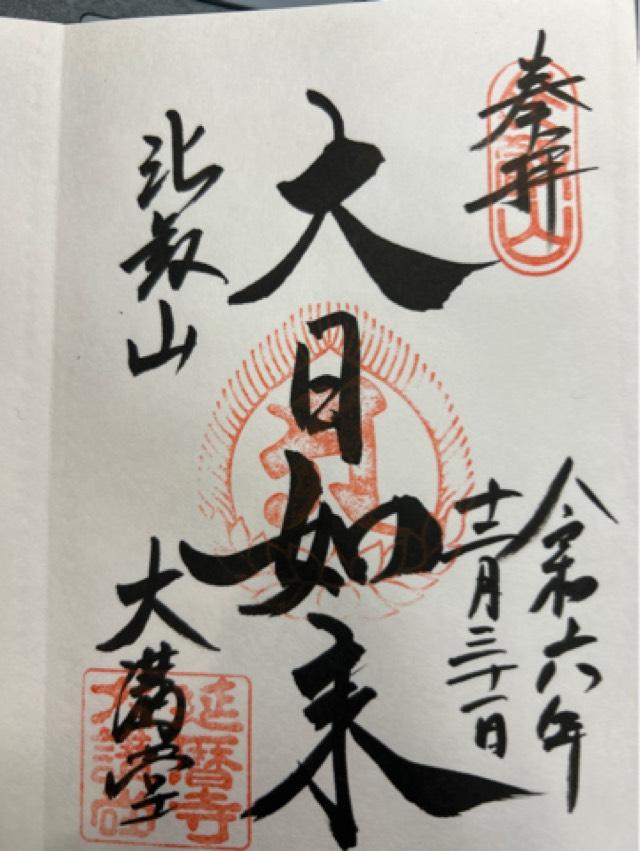 奉拝
令和六年
十二月三十一日
大日如来
比叡山
大講堂
延暦寺
大講堂